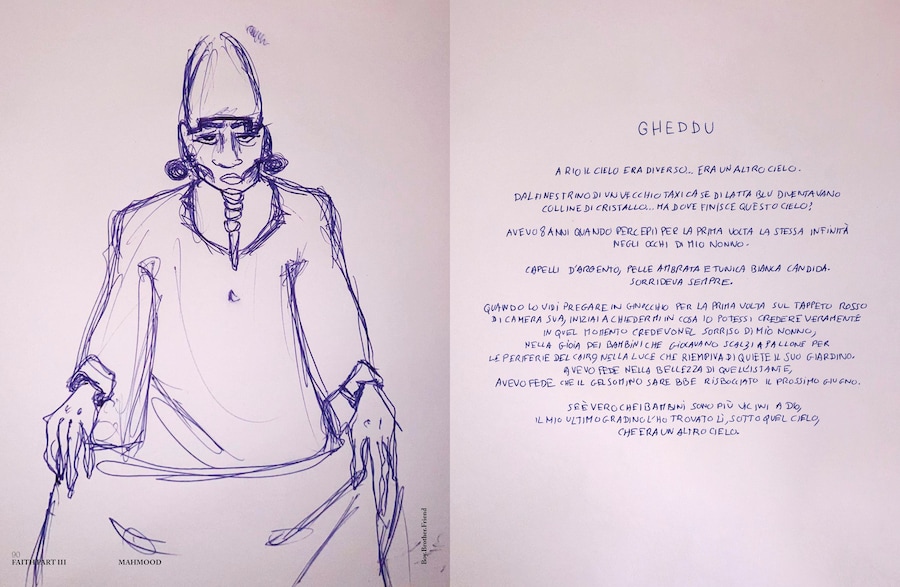 FAITH PART III
MAHMOOD
Boy.Brother.Friend
GHEDDU
A RIO IL CIELO ERA DIVERSO... ERA UN ALTRO CIELO.
DAL FINESTRINO DI UN VECCHIO TAXI CASE DI LATTA BLU DIVENTAVANO
COLLINE DI CRISTALLO... MA DOVE FINISCE QUESTO CIELO?
AVEVO 8 ANNI QUANDO PERCEPII PER LA PRIMA VOLTA LA STESSA INFINITÀ
NEGLI OCCHI DI MIO NONNO.
CAPELLI D'ARGENTO, PELLE AMBRATA E TUNICA BIANCA CANDIDA.
SORRIDEVA SEMPRE.
QUANDO LO VIDI PREGARE IN GINOCCHIO PER LA PRIMA VOLTA SUL TAPPETO ROSSO
DI CAMERA SUA, INIZIAI A CHIEDERMI IN COSA IO POTESSI CREDERE VERAMENTE
IN QUEL MOMENTO CREDEVO NEL SORRISO DI MIO NONNO,
NELLA GIOIA DEI BAMBINI CHE GIOCAVANO SCALZI A PALLONE PER
LE PERIFERIE DEL CAIRO, NELLA LUCE CHE RIEMPIVA DI QUIETE IL SUO GIARDINO.
AVEVO FEDE NELLA BELLEZZA DI QUELL'ISTANTE,
AVEVO FEDE CHE IL GELSOMINO SAREBBE RISBOCCIATO IL PROSSIMO GIUGNO.
SE È VERO CHE I BAMBINI SONO PIÙ VICINI A DIO,
IL MIO ULTIMO GRADINO L'HO TROVATO LÌ, SOTTO QUEL CIELO,
CHE ERA UN ALTRO CIELO.